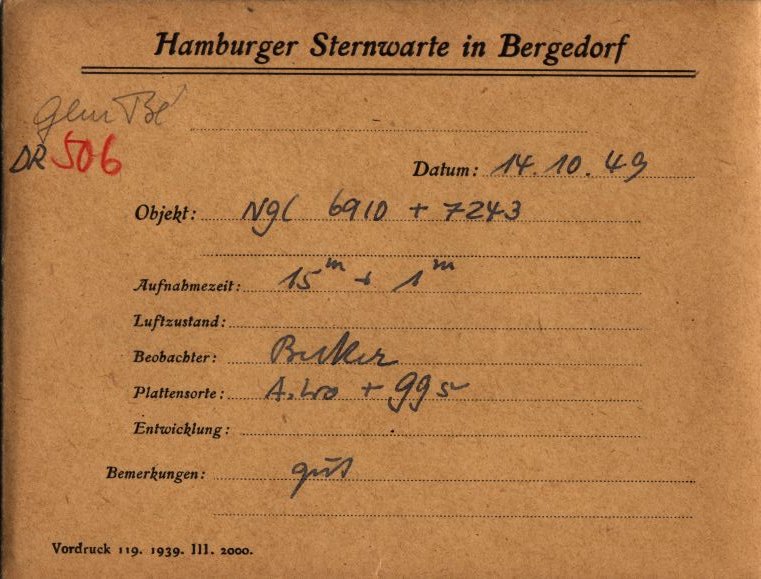 Hamburger Sternwarte in Bergedorf
DR 506
Datum: 14. 10. 49
Objekt: NGC 6910 + 7243
Aufnahmezeit: 15ᵐ + 1ᵐ
Luftzustand:
Beobachter: Becker
Plattensorte: + GG5
Entwicklung:
Bemerkungen: gut
Vordruck 119. 1939. III. 2000.